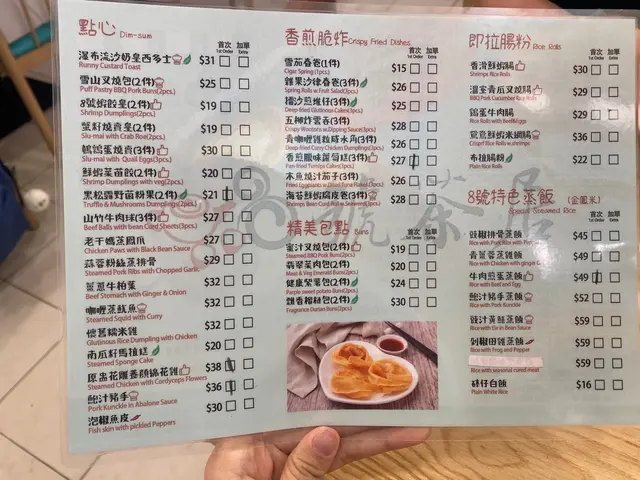 點心 Dim-sum
首次 加單
1st Order Extra
瀑布流沙奶皇西多士 $31
Runny Custard Toast
雪山叉燒包(2件) $25
Puff Pastry BBQ Pork Buns(2pcs.)
8號蝦餃皇(2件) $19
Shrimp Dumplings(2pcs.)
蟹籽燒賣皇(2件) $19
Siu-mai with Crab Roe(2pcs.)
鵪鶉蛋燒賣(3件) $30
Siu-mai with Quail Eggs(3pcs.)
鮮蝦菜苗餃(2件) $20
Shrimp Dumplings with veg(2pcs.)
黑松露野菌粉果(2件) $21
Truffle & Mushrooms Dumplings(2pcs.)
山竹牛肉球(3件) $27
Beef Balls with Bean Curd Sheets(3pcs.)
老干媽蒸鳳爪 $27
Chicken Paws with Black Bean Sauce
蒜蓉粉絲蒸排骨 $29
Steamed Pork Ribs with Chopped Garlic
薑蔥牛柏葉 $32
Beef Stomach with Ginger & Onion
咖喱蒸魷魚 $32
Steamed Squid with Curry
懷舊糯米雞 $32
Glutinous Rice Dumpling with Chicken
南瓜籽馬拉糕 $20
Steamed Sponge Cake
原盅花雕香蟲草花雞 $38
Steamed Chicken with Cordyceps Flowers
鮑汁豬手 $36
Pork Kunckle in Abalone Sauce
泡椒魚皮 $30
Fish skin with pickled Peppers
香煎脆炸 Crispy Fried Dishes
首次 加單
1st Order Extra
雪茄春卷(1件) $15
Cigar Spring (1pcs.)
雜果沙律春卷(3件) $26
Spring Rolls w.Fruit Salad(3pcs.)
擂沙煎堆仔(3件) $25
Deep-fried Glutinous Cakes(3pcs.)
五柳炸雲吞(3件) $28
Crispy Wontons w.Dipping Sauce(3pcs.)
青咖喱雞粒咸水角(3件) $26
Deep-fried Curry Chicken Dumpling(3pcs.)
香煎臘味蘿蔔糕(3件) $27
Pan-fried Turnip Cakes(3pcs.)
木魚燒汁茄子(3件) $26
Fried Eggplants w.Dried Tuna Flakes(3pcs.)
海苔鮮蝦腐皮卷(3件) $28
Shrimps Bean Curd Rolls w.Seaweed(3pcs.)
精美包點 Buns
首次 加單
1st Order Extra
蜜汁叉燒包(2件) $19
Steamed BBQ Pork Buns(2pcs.)
翡翠菜肉包(2件) $20
Meat & Veg Emerald Buns(2pcs.)
健康紫薯包(2件) $24
Purple sweet potato Buns(2pcs.)
飄香榴槤包(2件) $30
Fragrance Durian Buns(2pcs.)
即拉腸粉 Rice Rolls
首次 加單
1st Order Extra
香滑鮮蝦腸 $30
Shrimps Rice Rolls
溫室青瓜叉燒腸 $29
BBQ Pork Cucumber Rice Rolls
鴛蛋牛肉腸 $29
Rice Rolls with Beef&Eggs
鴛鴦鮮蝦米網腸 $36
Crispf Rice Rolls w.shrimps
布拉腸粉 $22
Plain Rice Rolls
8號特色蒸飯 (金鳳米)
Special Steamed Rice
首次 加單
1st Order Extra
豉椒排骨蒸飯 $45
Rice with Pork Ribs with Pepper
青薑蓉蒸雞飯 $49
Rice with Chicken with ginger
牛肉煎蛋蒸飯 $49
Rice with Beef and Egg
鮑汁豬手蒸飯 $52
Rice with Pork Kunckle
豉汁黃鱔蒸飯 $59
Rice with Eir in Bean Sauce
剁椒田雞蒸飯 $59
Rice with Frog and Pepper
$59
Rice with seasonal cured meat
砵仔白飯 $16
Plain White Rice
8號茶居